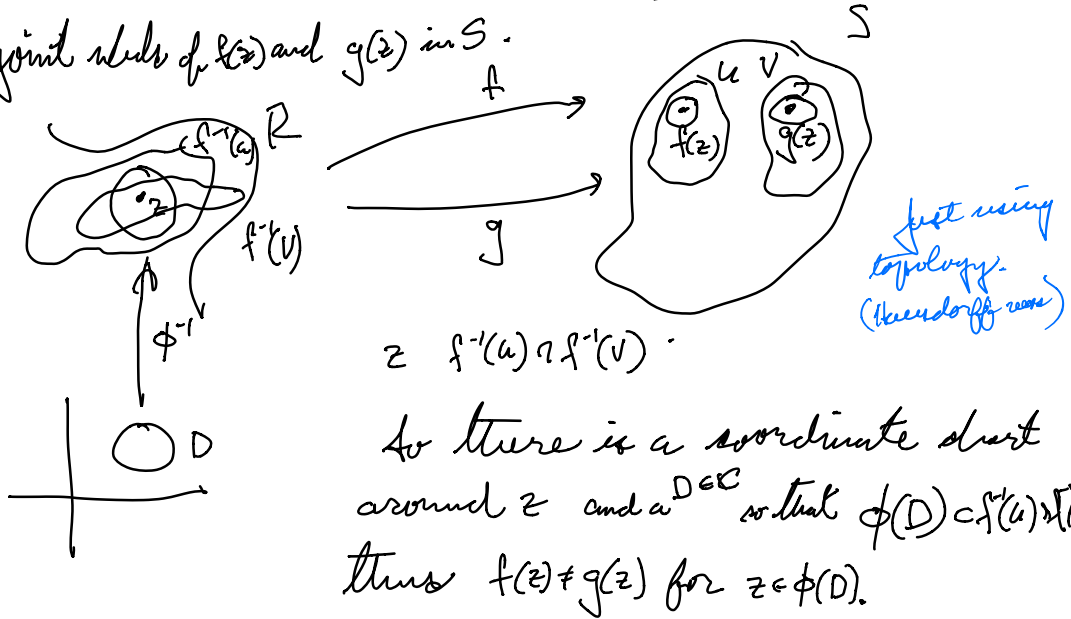 joint nbds of f(z) and g(z) in S.
f
S
U V
R
f⁻¹(U)
f(z)
g(z)
z
g
f⁻¹(V)
Just using
topology.
(Hausdorffness)
ϕ⁻¹
z f⁻¹(U) ∩ f⁻¹(V)
D
So there is a coordinate chart
around z and a D ∈ ℂ so that ϕ(D) ⊂ f⁻¹(U) ∩ f
thus f(z) ≠ g(z) for z ∈ ϕ(D).